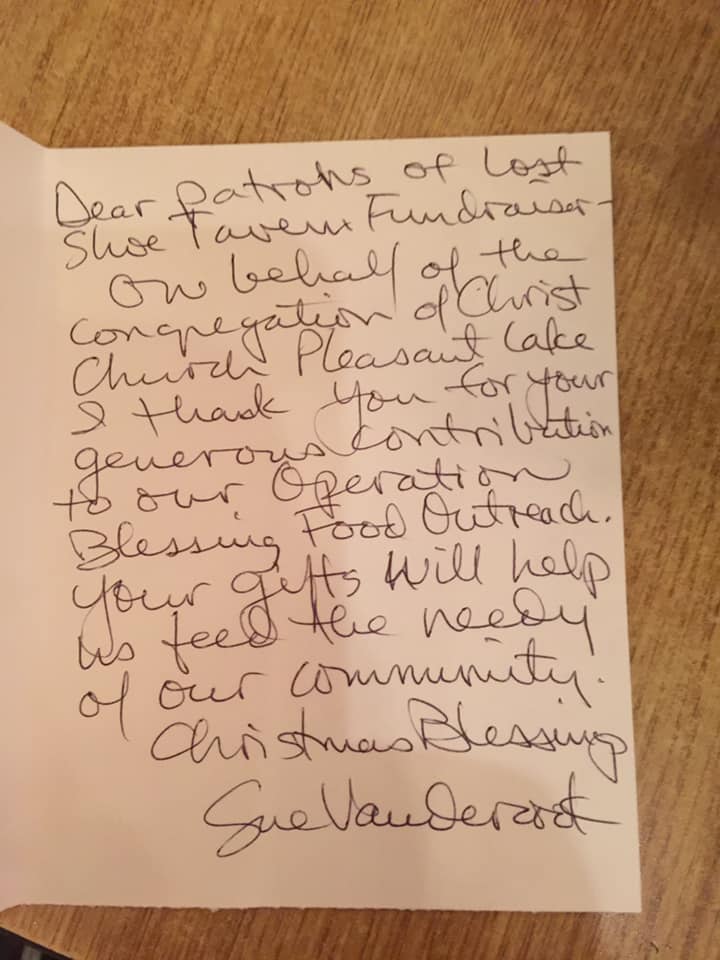 Dear patrons of Lost
Shoe Tavern Fundraiser-
On behalf of the
congregation of Christ
Church Pleasant Lake
I thank you for your
generous contribution
to our Operation
Blessing Food Outreach.
Your gifts will help
us feed the needy
of our community.
Christmas Blessing
Sue